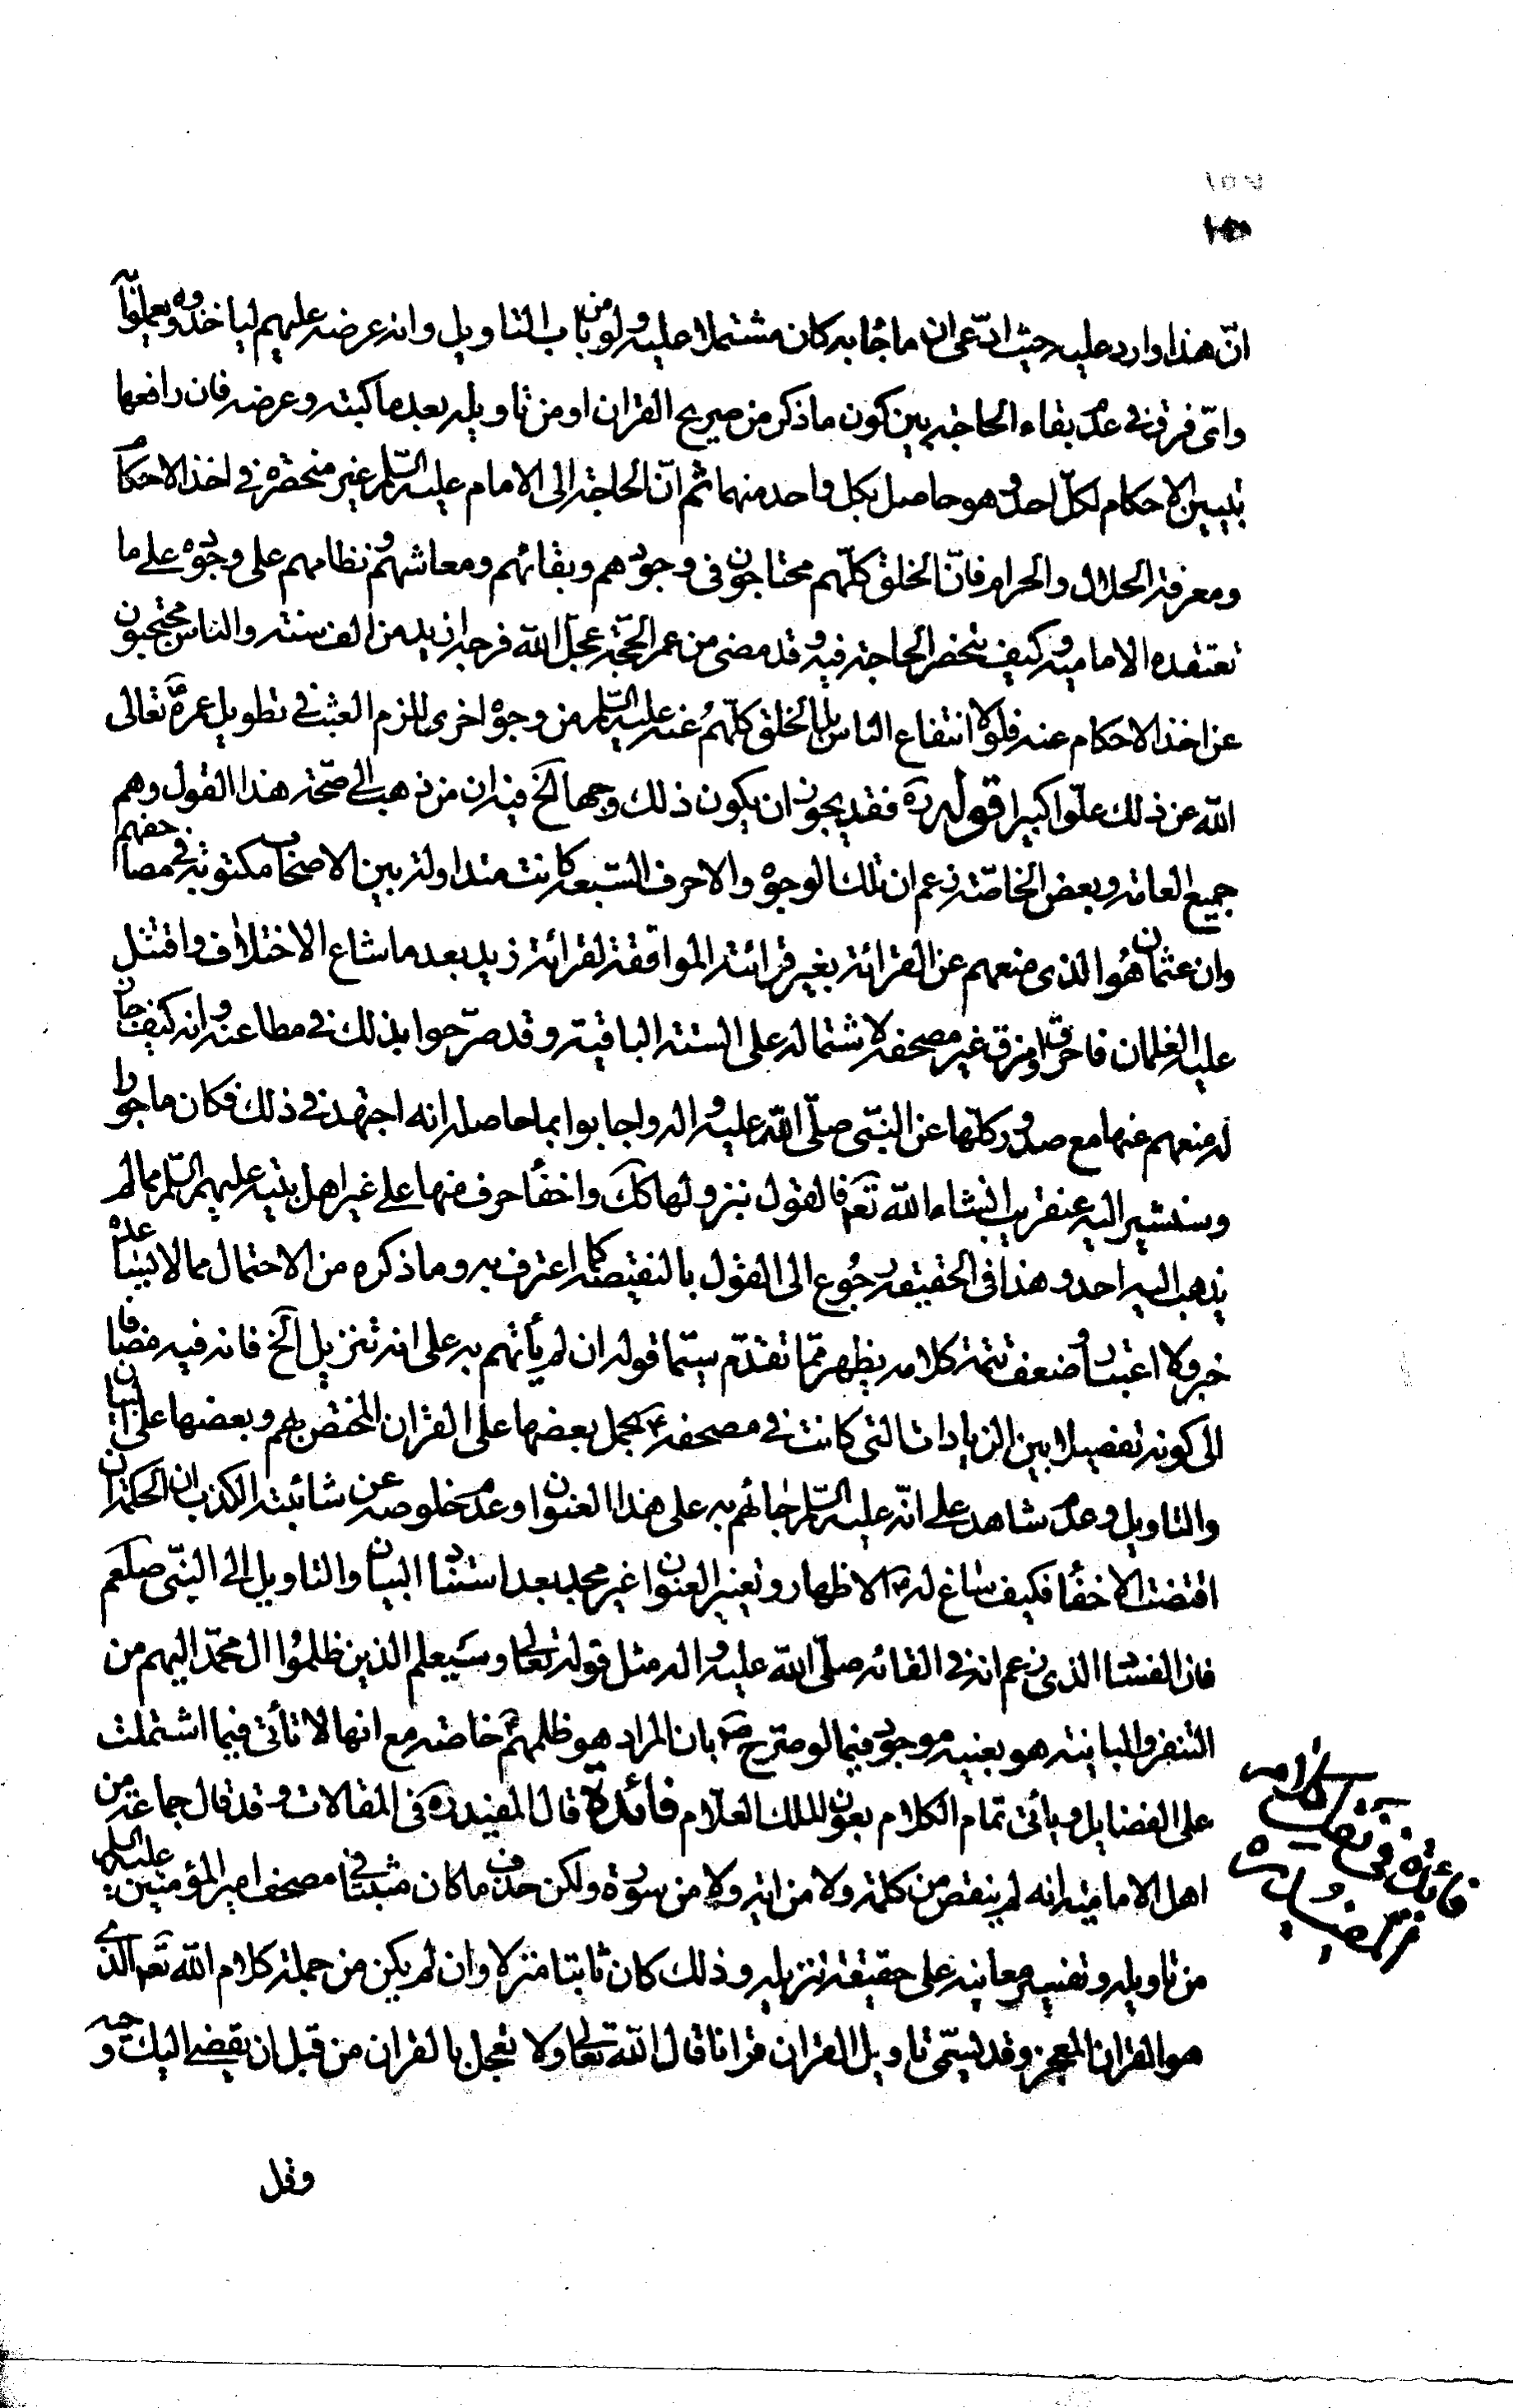 انّ هذا وارد عليه حيث ادّعى ان ما جاء به كان مشتملا عليه ولو من باب التاويل وانه عرضه عليهم لياخذوه ويعملوا به
واىّ فرق فى عدم بقاء الحاجة بين كون ما ذكر من صريح القران او من تاويله بعد ما كتبه وعرضه فان رافعها
تبيين الاحكام لكلّ احد وهو حاصل بكل واحد منهما ثم انّ الحاجة الى الامام عليه السّلم غير منحصرة فى اخذ الاحكام
ومعرفة الحلال والحرام فانّ الخلق كلّهم محتاجون فى وجودهم وبقائهم ومعاشهم ونظامهم على وجوده على ما
تعتقده الامامية وكيف ينحصر الحاجة فيه وقد مضى من عمر الحجّة عجّل اللّه فرجه ازيد من الف سنة والناس محتجبون
عن اخذ الاحكام عنه فلولا انتفاع الناس بل الخلق كلّهم عنه عليه السّلم من وجوه اخرى للزم العبث فى تطويل عمره تعالى
اللّه عن ذلك علوّا كبيرا قوله ره فقد يجوز ان يكون ذلك وجها الخ فيه ان من ذهب الى صحّة هذا القول وهم
جميع العامة وبعض الخاصّة زعم ان تلك الوجوه والاحرف السّبعة كانت متداولة بين الاصحاب مكتوبة فى مصاحفهم
وان عثمان هو الذى منعهم عن القرائة بغير قرائته الموافقة لقرائة زيد بعد ما شاع الاختلاف واقتتل
عليه الغلمان فاحرق او مزق غير مصحفه لاشتماله على الستة الباقية وقد صرّحوا بذلك فى مطاعنه وانه كيف جاز
له منعهم عنها مع صدور كلّها عن النبّى صلّى اللّه عليه واله واجابوا بما حاصله انه اجتهد فى ذلك فكان ماجورا
وسنشير اليه عنقريب انشاء اللّه تعم فالقول بنزولها كك واخفاء حرف منها على غير اهل بيته عليهم السّلم مما لم
يذهب اليه احد وهذا فى الحقيقة رجوع الى القول بالنقيصة كما اعترف به وما ذكره من الاحتمال مما لا يساعده
خبر ولا اعتبار وضعف تتمة كلامه يظهر ممّا تقدّم سيّما قوله ان لم يأتهم به على انه تنزيل الخ فانه فيه مضافا
الى كونه تفصيلا بين الزيادات التى كانت فى مصحفه ع يحمل بعضها على القران المختص بهم وبعضها على البيان
والتاويل وعدم شاهد على انّه عليه السّلم جائهم به على هذا العنوان وعدم خلوصه عن شائبة الكذب ان الحكمة ان
اقتضت الاخفاء فكيف ساغ له ع الاظهار وتغيير العنوان غير مجد بعد استناد البيان والتاويل الى النبّى صلعم
فان الفساد الذى زعم انه فى القائه صلّى اللّه عليه واله مثل قوله تعالى وسيعلم الذين ظلموا ال محمّد اليهم من
التنفر والمباينة هو بعينه موجود فيما لو صرّح ص بان المراد هو ظلمهم خاصة مع انها لا تأتى فيما اشتملت
على الفضايل وياتى تمام الكلام بعون الملك العلّام فائدة قال المفيد ره فى المقالات وقد قال جماعة من
اهل الامامية انه لم ينقص من كلمة ولا من اية ولا من سورة ولكن حذف ما كان مثبتا فى مصحف امير المؤمنين عليه السلم
من تاويله وتفسير معانيه على حقيقة تنزيله وذلك كان ثابتا منزلا وان لم يكن من جملة كلام اللّه تعم الذى
هو القران المعجز وقد يسمّى تاويل القران قرانا قال اللّه تعالى ولا تعجل بالقران من قبل ان يقضى اليك وحيه
وقل
فائدة فى نقل كلام